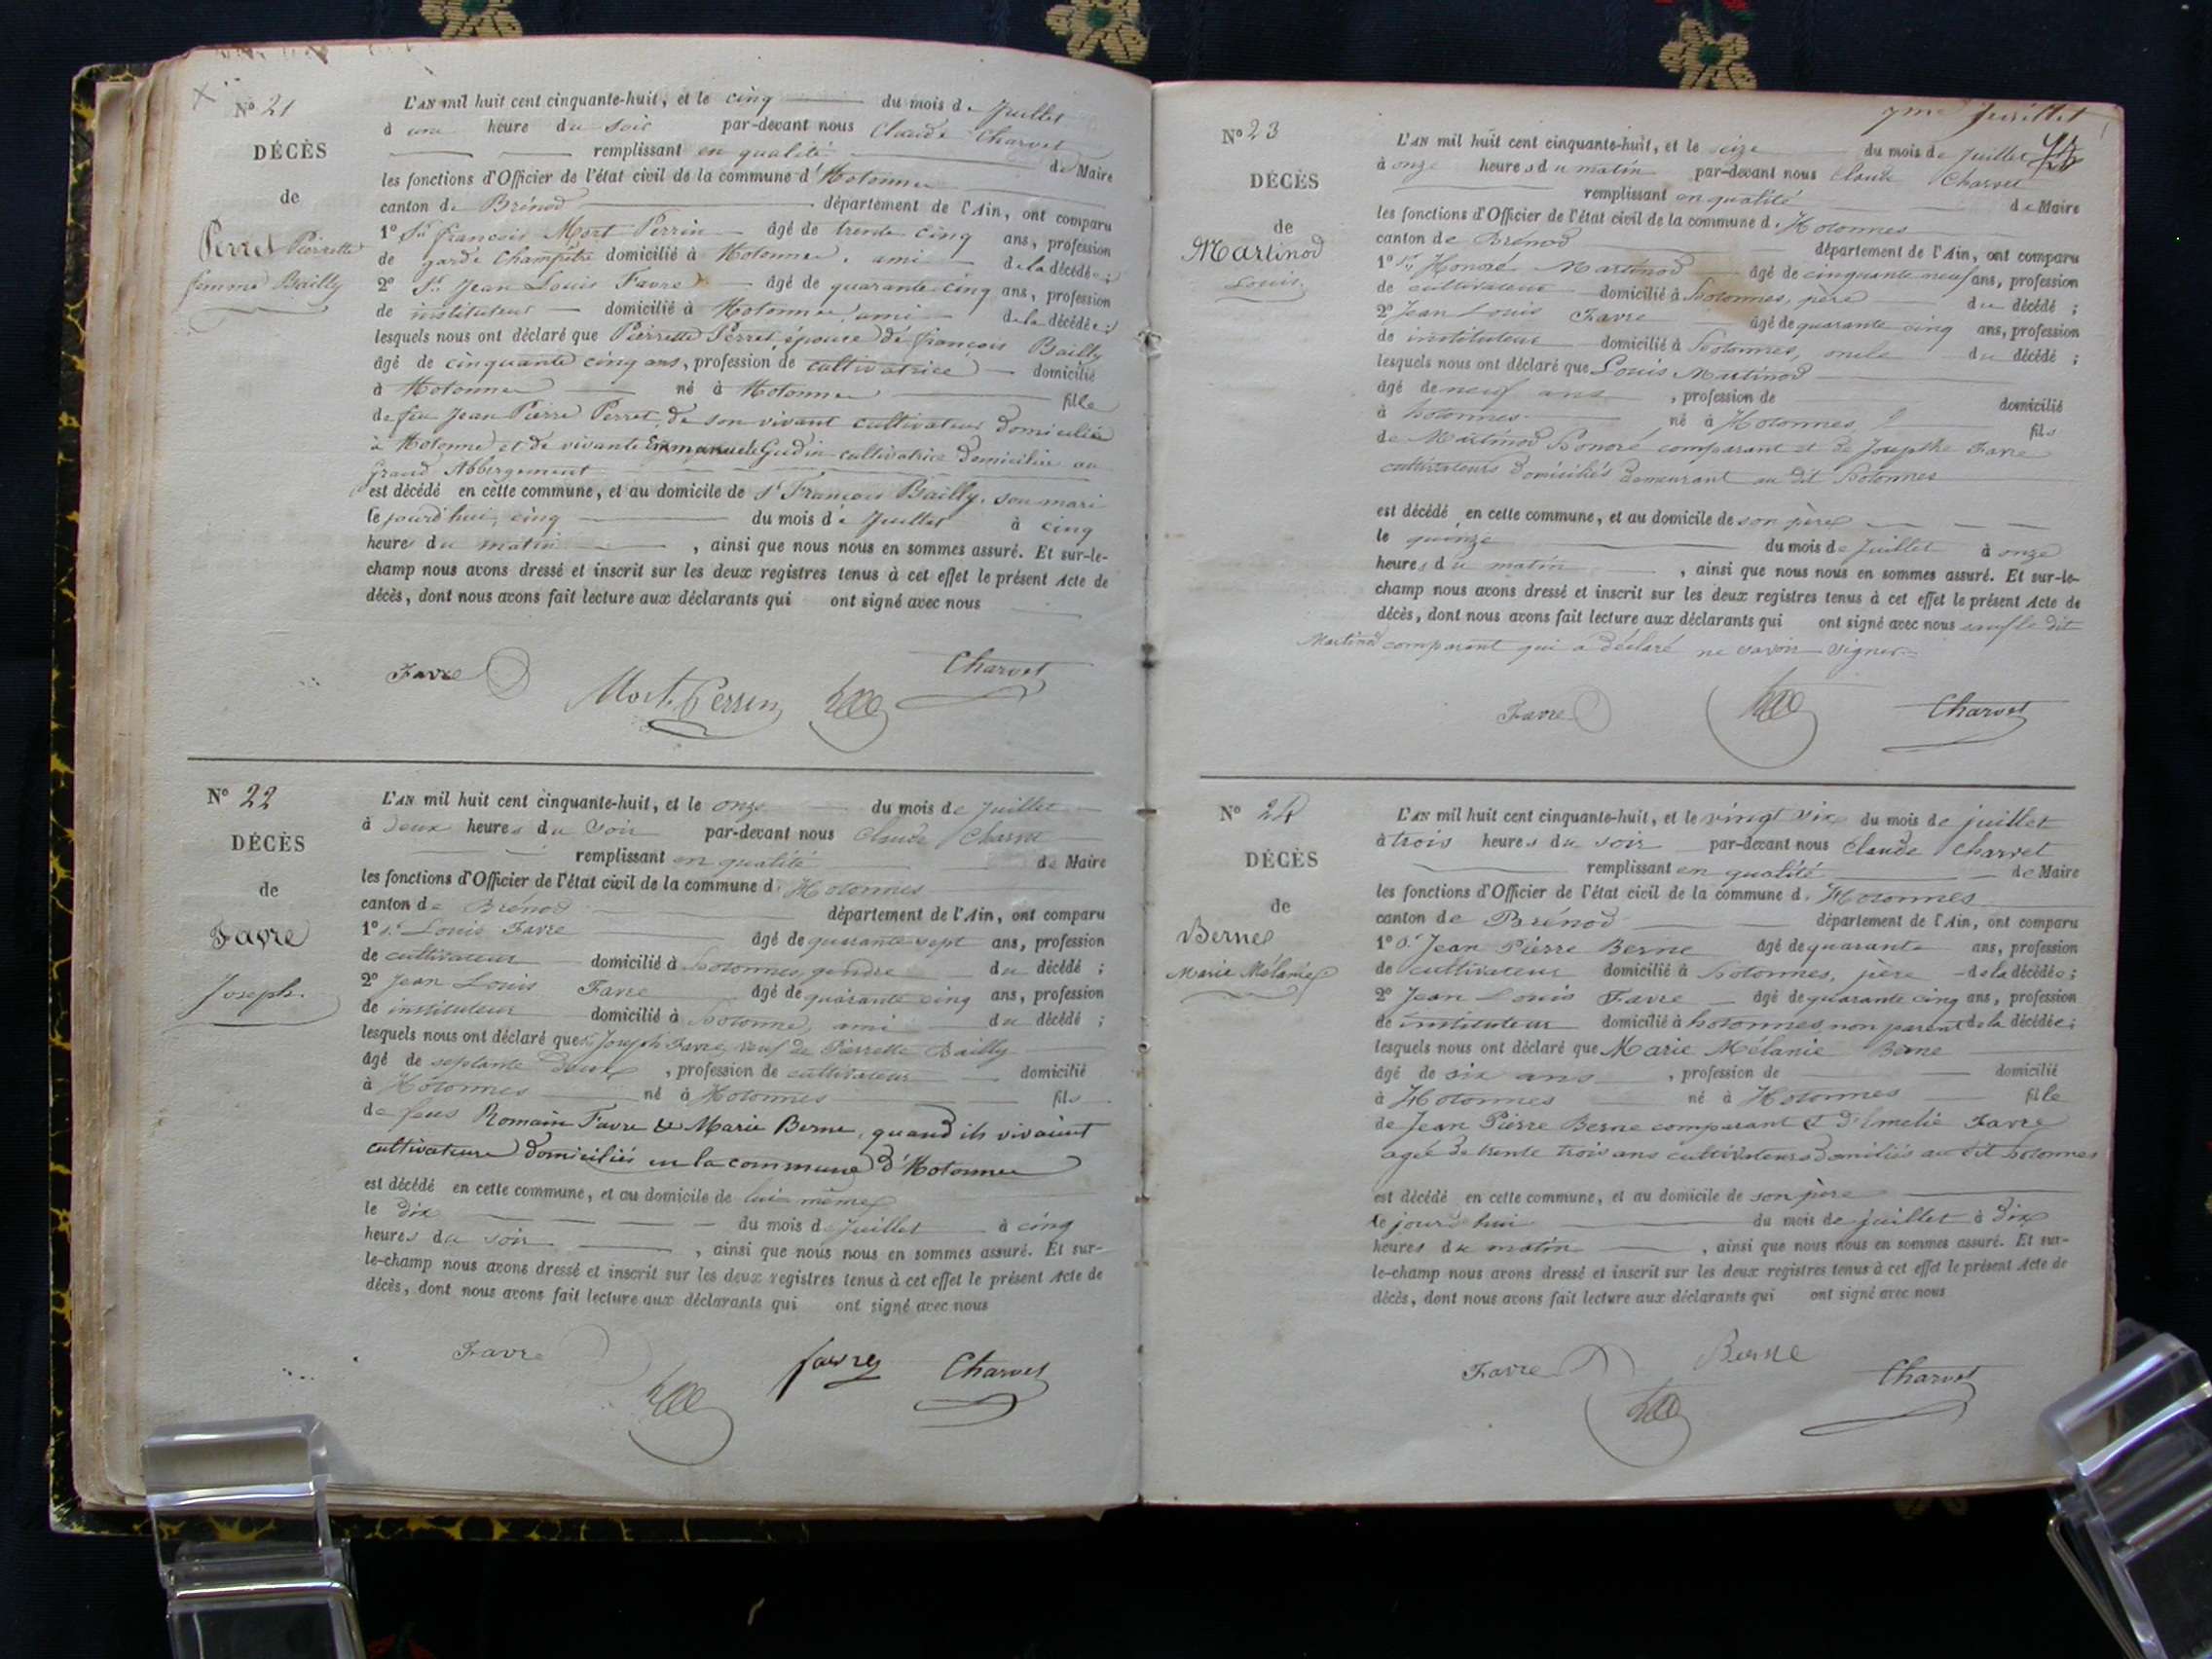 N° 21
DÉCÈS
de
Perret Pierrette
femme Bailly
L'AN mil huit cent cinquante-huit, et le cinq du mois de Juillet
à une heure du soir par-devant nous Claude Charvet
remplissant en qualité de Maire
les fonctions d'Officier de l'état civil de la commune d'Hotonnes
canton de Brénod département de l'Ain, ont comparu
1° Sr François Mort Perrin âgé de trente cinq ans, profession
de garde champêtre domicilié à Hotonnes, ami de la décédée ;
2° Sr Jean Louis Favre âgé de quarante cinq ans, profession
de instituteur domicilié à Hotonnes, ami de la décédée ;
lesquels nous ont déclaré que Pierrette Perret, épouse de François Bailly
âgé de cinquante cinq ans, profession de cultivatrice domicilié
à Hotonnes né à Hotonnes fille
de feu Jean Pierre Perret, de son vivant cultivateur domicilié
à Hotonnes et de vivante Emmanuele Gudin cultivatrice domiciliée au
Grand Abbergement
est décédé en cette commune, et au domicile de Sr François Bailly, son mari
le jourd'hui, cinq du mois de Juillet à cinq
heures du matin, ainsi que nous nous en sommes assuré. Et sur-le-
champ nous avons dressé et inscrit sur les deux registres tenus à cet effet le présent Acte de
décès, dont nous avons fait lecture aux déclarants qui ont signé avec nous
Favre Mort Perrin Charvet
N° 22
DÉCÈS
de
Favre
Joseph.
L'AN mil huit cent cinquante-huit, et le onze du mois de Juillet
à deux heures du soir par-devant nous Claude Charvet
remplissant en qualité de Maire
les fonctions d'Officier de l'état civil de la commune d. Hotonnes
canton de Brénod département de l'Ain, ont comparu
1° Sr Louis Favre âgé de quarante sept ans, profession
de cultivateur domicilié à hotonnes, gendre du décédé ;
2° Jean Louis Favre âgé de quarante cinq ans, profession
de instituteur domicilié à hotonnes, ami du décédé ;
lesquels nous ont déclaré que Joseph Favre, veuf de Pierrette Bailly
âgé de septante deux, profession de cultivateur domicilié
à Hotonnes né à Hotonnes fils
de feus Romain Favre & Marie Berne, quand ils vivaient
cultivateurs domiciliés en la commune d'Hotonnes
est décédé en cette commune, et au domicile de lui même
le dix du mois de Juillet à cinq
heures du soir, ainsi que nous nous en sommes assuré. Et sur-
le-champ nous avons dressé et inscrit sur les deux registres tenus à cet effet le présent Acte de
décès, dont nous avons fait lecture aux déclarants qui ont signé avec nous
Favre favre Charvet
7me Juillet
N° 23
DÉCÈS
de
Martinod
Louis.
L'AN mil huit cent cinquante-huit, et le seize du mois de Juillet
à onze heures du matin par-devant nous Claude Charvet
remplissant en qualité de Maire
les fonctions d'Officier de l'état civil de la commune d. Hotonnes
canton de Brénod département de l'Ain, ont comparu
1° Sr Honoré Martinod âgé de cinquante neuf ans, profession
de cultivateur domicilié à hotonnes, père du décédé ;
2° Jean Louis Favre âgé de quarante cinq ans, profession
de instituteur domicilié à hotonnes, oncle du décédé ;
lesquels nous ont déclaré que Louis Martinod
âgé de neuf ans, profession de domicilié
à hotonnes né à Hotonnes, fils
de Martinod Honoré comparant et de Josepthe Favre
cultivateurs domiciliés demeurant au dit hotonnes
est décédé en cette commune, et au domicile de son père
le quinze du mois de Juillet à onze
heures du matin, ainsi que nous nous en sommes assuré. Et sur-le-
champ nous avons dressé et inscrit sur les deux registres tenus à cet effet le présent Acte de
décès, dont nous avons fait lecture aux déclarants qui ont signé avec nous sauf le dit
Martinod comparant qui a déclaré ne savoir signer.
Favre Charvet
N° 24
DÉCÈS
de
Berne
Marie Mélanie
L'AN mil huit cent cinquante-huit, et le vingt six du mois de juillet
à trois heures du soir par-devant nous Claude Charvet
remplissant en qualité de Maire
les fonctions d'Officier de l'état civil de la commune d. Hotonnes
canton de Brénod département de l'Ain, ont comparu
1° Sr Jean Pierre Berne âgé de quarante ans, profession
de cultivateur domicilié à hotonnes, père de la décédée ;
2° Jean Louis Favre âgé de quarante cinq ans, profession
de instituteur domicilié à hotonnes non parent de la décédée ;
lesquels nous ont déclaré que Marie Mélanie Berne
âgé de six ans, profession de domicilié
à Hotonnes né à Hotonnes fille
de Jean Pierre Berne comparant & d'Emelie Favre
agée de trente trois ans cultivateurs domiliés au dit hotonnes
est décédé en cette commune, et au domicile de son père
le jourd'hui du mois de juillet à dix
heures du matin, ainsi que nous nous en sommes assuré. Et sur-
le-champ nous avons dressé et inscrit sur les deux registres tenus à cet effet le présent Acte de
décès, dont nous avons fait lecture aux déclarants qui ont signé avec nous
Favre Berne Charvet